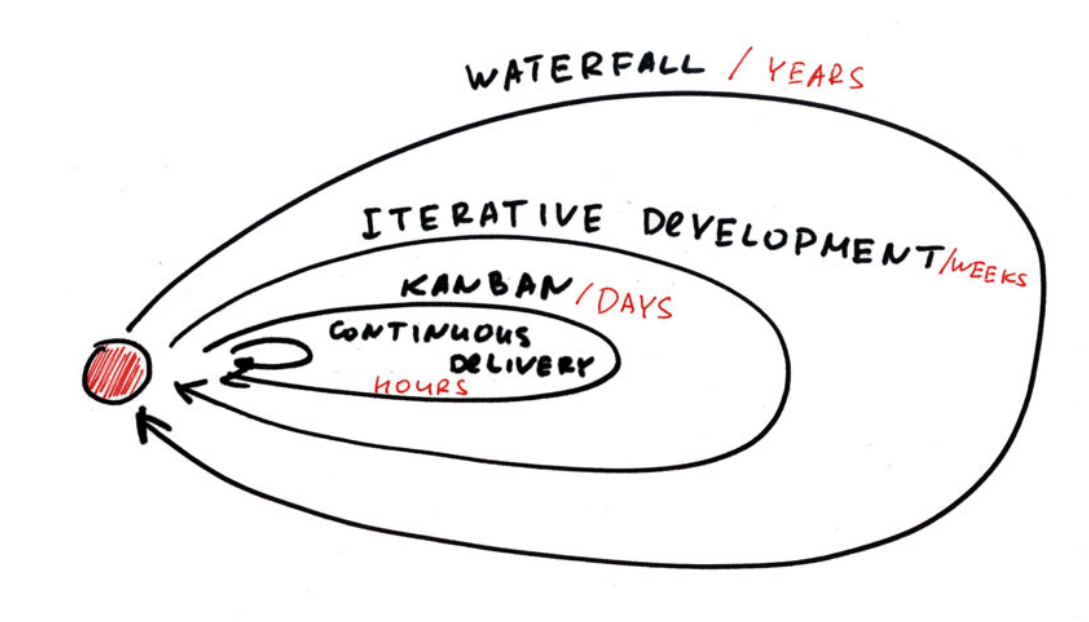 WATERFALL / YEARS
ITERATIVE DEVELOPMENT/WEEKS
KANBAN/DAYS
CONTINUOUS
DELIVERY
HOURS